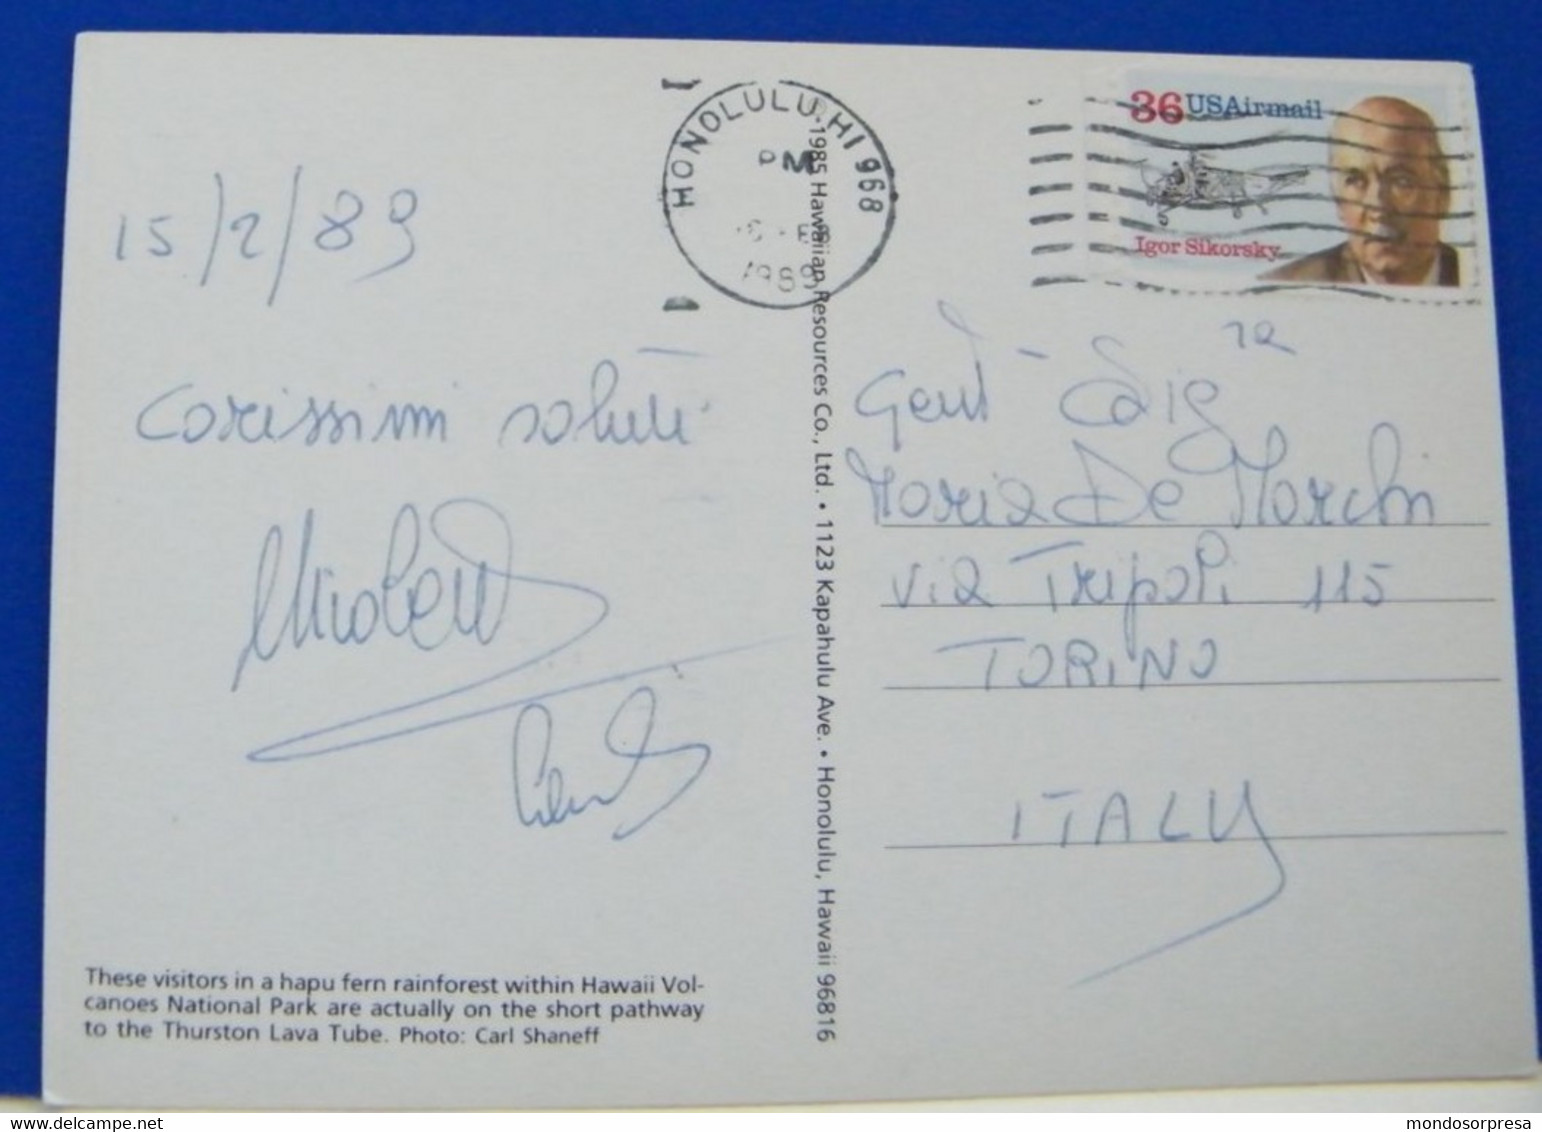 15/2/89
Carissimi saluti
These visitors in a hapu fern rainforest within Hawaii Vol-
canoes National Park are actually on the short pathway
to the Thurston Lava Tube. Photo: Carl Shaneff
1985 Hawaiian Resources Co., Ltd. • 1123 Kapahulu Ave. • Honolulu, Hawaii 96816
HONOLULU HI 968
PM
1989
36 USAirmail
Igor Sikorsky
Gent Sig ra
Maria De Marchi
Via Tripoli 115
TORINO
ITALY
mondosorpresa